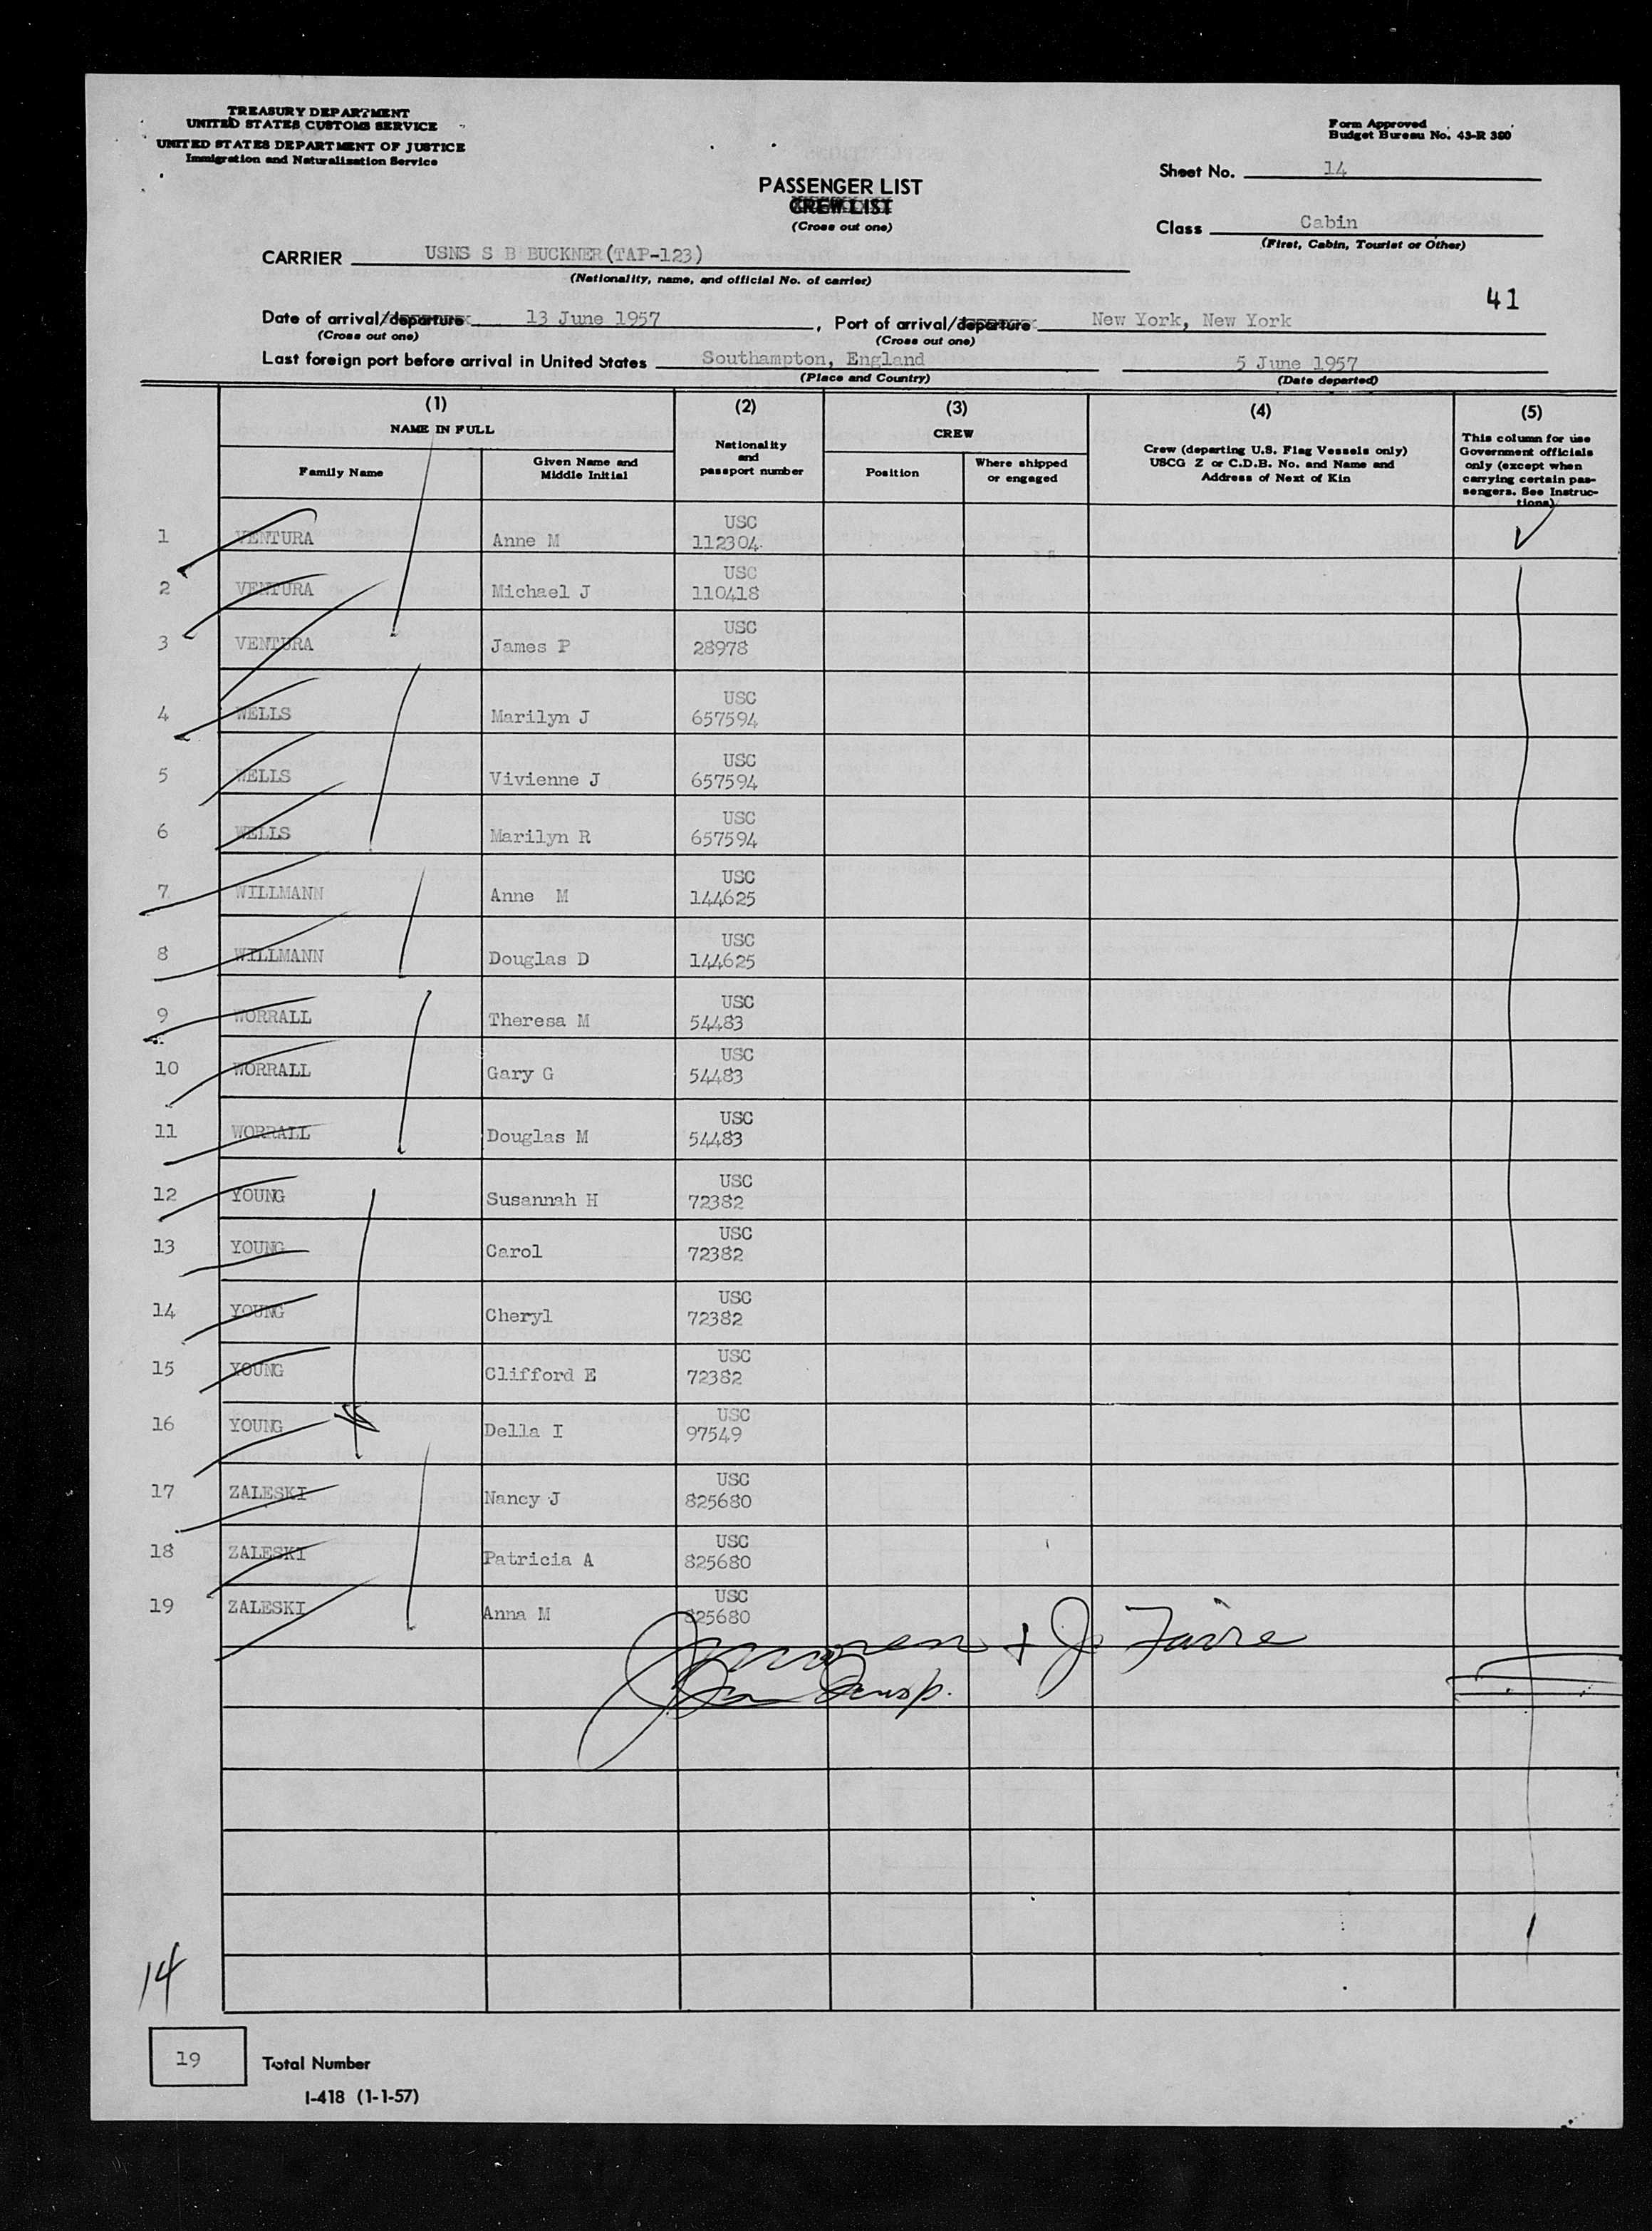 TREASURY DEPARTMENT
UNITED STATES CUSTOMS SERVICE
UNITED STATES DEPARTMENT OF JUSTICE
Immigration and Naturalization Service
Form Approved
Budget Bureau No. 43-R 380
Sheet No. 14
PASSENGER LIST
CREW LIST
(Cross out one)
Class Cabin
(First, Cabin, Tourist or Other)
CARRIER USNS S B BUCKNER(TAP-123)
(Nationality, name, and official No. of carrier)
41
Date of arrival/departure 13 June 1957, Port of arrival/departure New York, New York
(Cross out one) (Cross out one)
Last foreign port before arrival in United States Southampton, England 5 June 1957
(Place and Country) (Date departed)
(1) (2) (3) (4) (5)
NAME IN FULL Nationality and passport number CREW Crew (departing U.S. Flag Vessels only) USCG Z or C.D.B. No. and Name and Address of Next of Kin This column for use Government officials only (except when carrying certain passengers. See Instructions)
Family Name Given Name and Middle Initial Position Where shipped or engaged
1 VENTURA Anne M USC 112304
2 VENTURA Michael J USC 110418
3 VENTURA James P USC 28978
4 WELLS Marilyn J USC 657594
5 WELLS Vivienne J USC 657594
6 WELLS Marilyn R USC 657594
7 WILLMANN Anne M USC 144625
8 WILLMANN Douglas D USC 144625
9 WORRALL Theresa M USC 54483
10 WORRALL Gary G USC 54483
11 WORRALL Douglas M USC 54483
12 YOUNG Susannah H USC 72382
13 YOUNG Carol USC 72382
14 YOUNG Cheryl USC 72382
15 YOUNG Clifford E USC 72382
16 YOUNG Della I USC 97549
17 ZALESKI Nancy J USC 825680
18 ZALESKI Patricia A USC 825680
19 ZALESKI Anna M USC 825680
14
19 Total Number
I-418 (1-1-57)